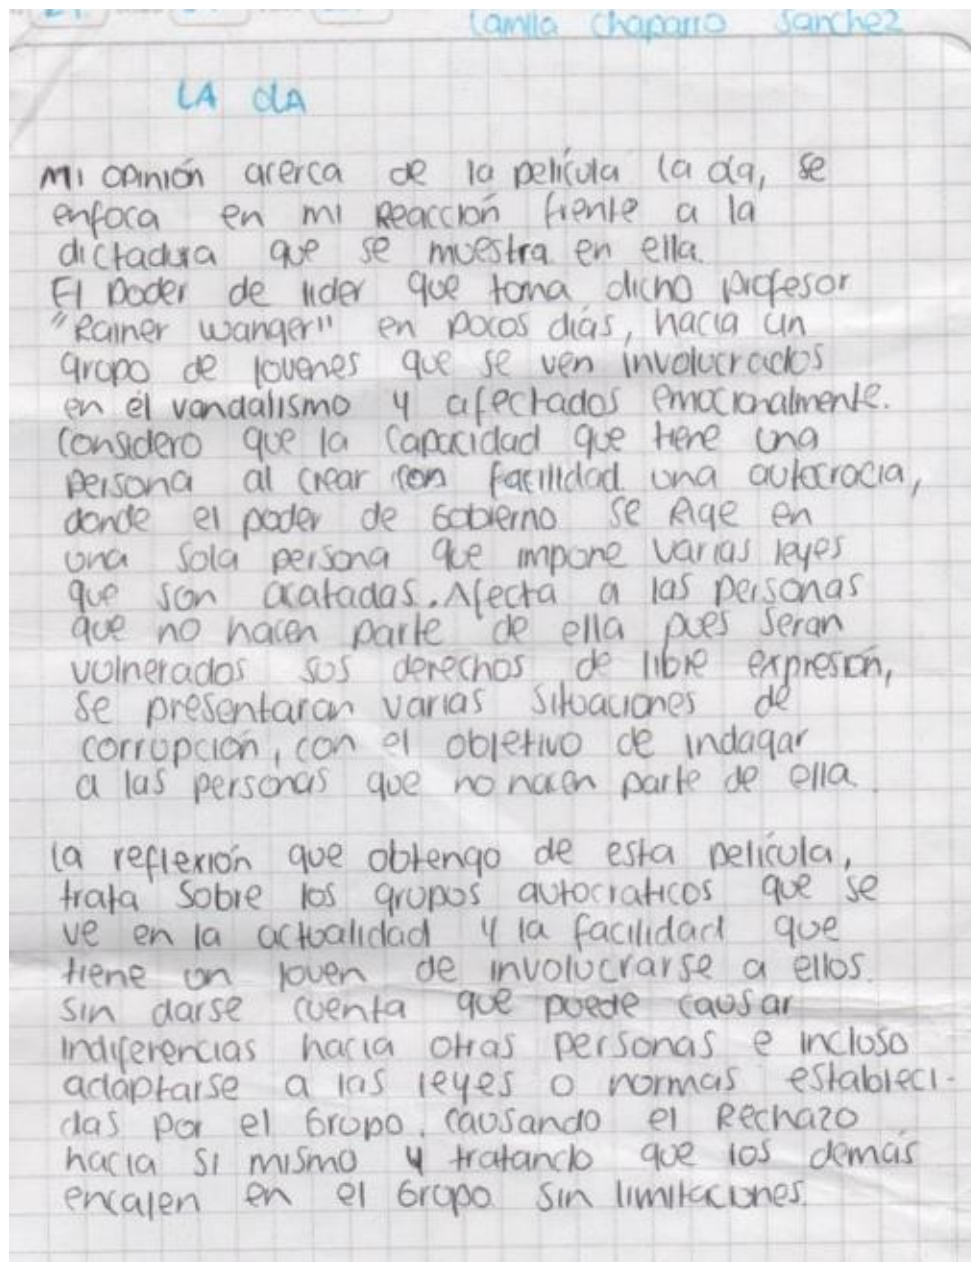 Camila Chaparro Sanchez
LA OLA
Mi opinión acerca de la película la ola, se
enfoca en mi Reacción frente a la
dictadura que se muestra en ella.
El poder de lider que toma dicho profesor
"Rainer wanger" en pocos días, hacia un
grupo de jovenes que se ven involucrados
en el vandalismo y afectados emocionalmente.
Considero que la capacidad que tiene una
persona al crear con facilidad una autocracia,
donde el poder de Gobierno se Rige en
una sola persona que impone varias leyes
que son acatadas. Afecta a las personas
que no hacen parte de ella pues seran
vulnerados sus derechos de libre expresión,
se presentaran varias situaciones de
corrupción, con el objetivo de indagar
a las personas que no hacen parte de ella.
la reflexión que obtengo de esta película,
trata sobre los grupos autocraticos que se
ve en la actualidad y la facilidad que
tiene un joven de involucrarse a ellos.
sin darse cuenta que puede causar
indiferencias hacia otras personas e incluso
adaptarse a las leyes o normas estableci-
das por el Grupo. causando el Rechazo
hacia si mismo y tratando que los demás
encajen en el Grupo sin limitaciones.